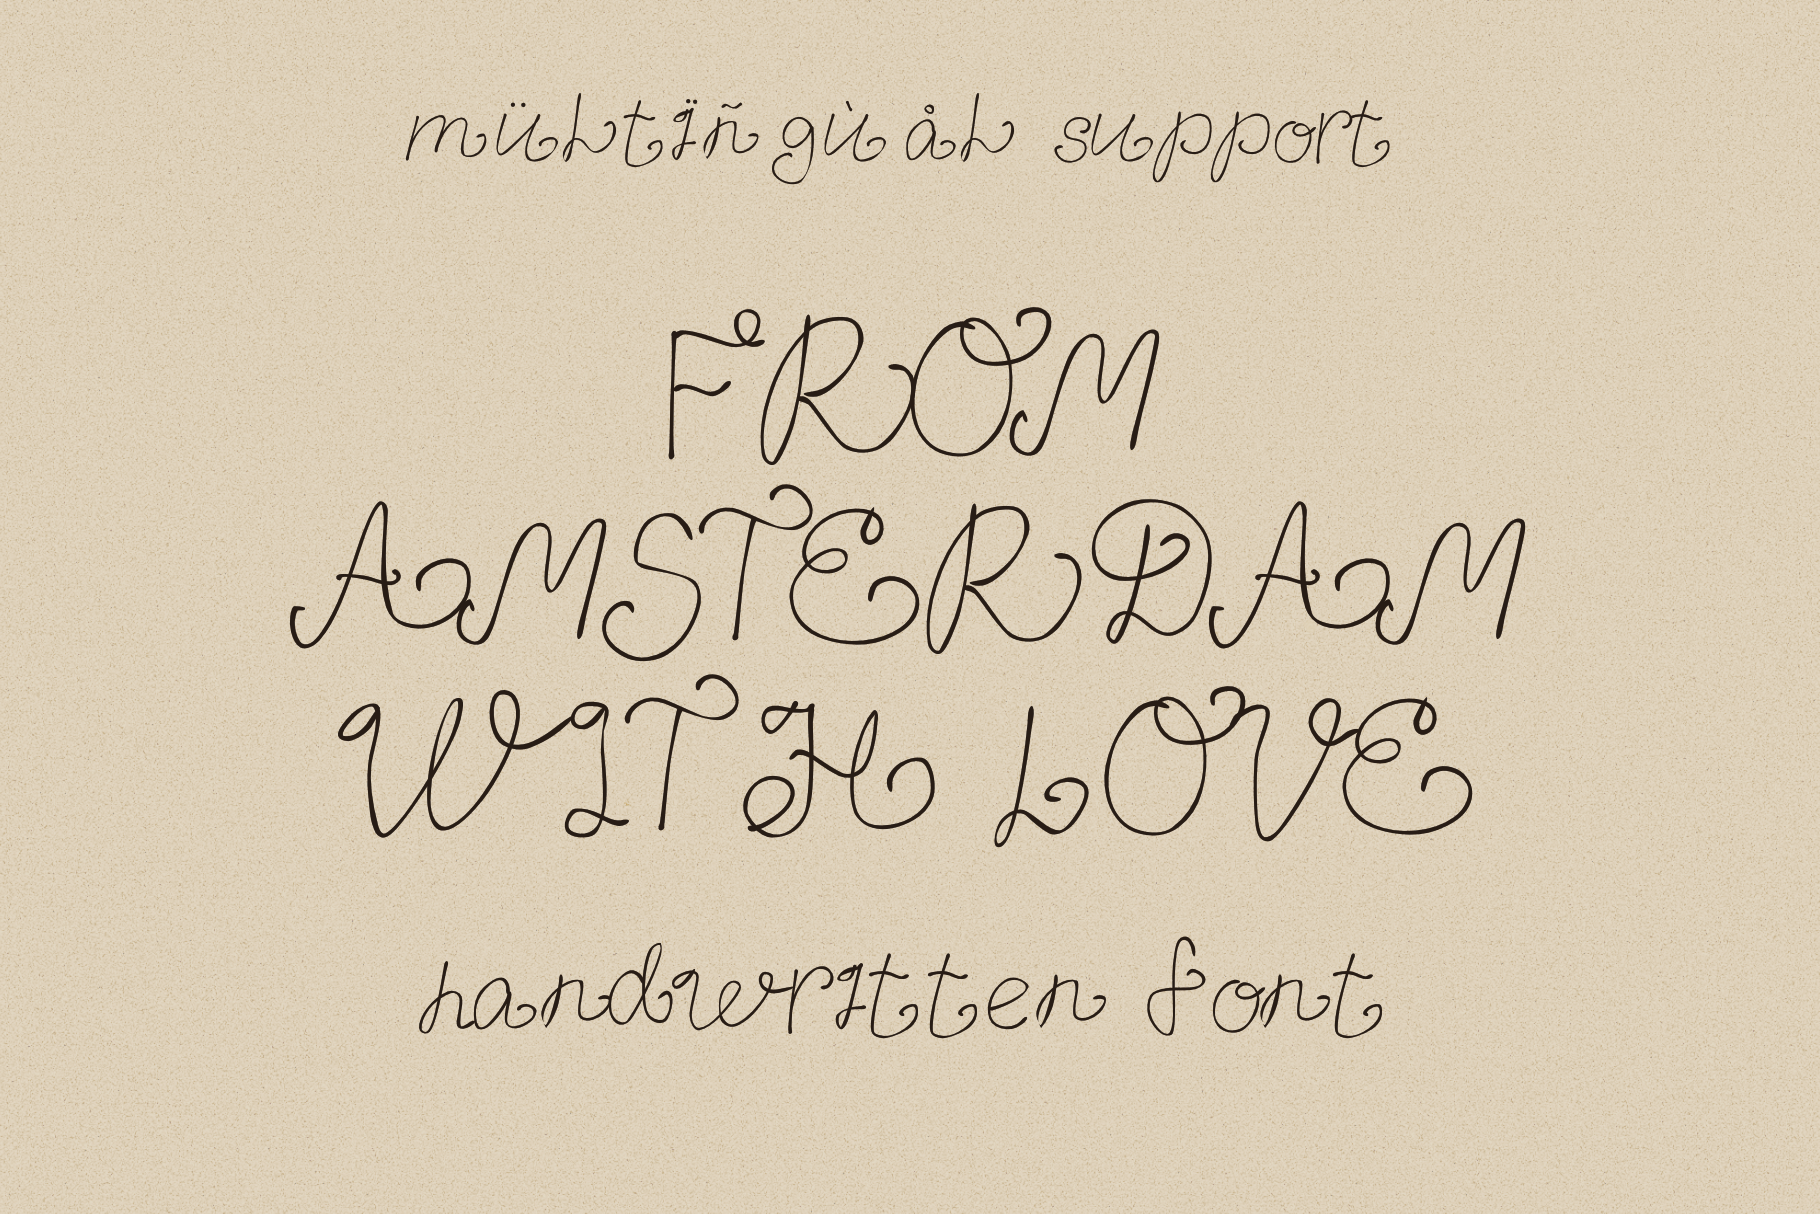 mültïñgùål support
FROM
AMSTERDAM
WITH LOVE
handwritten font